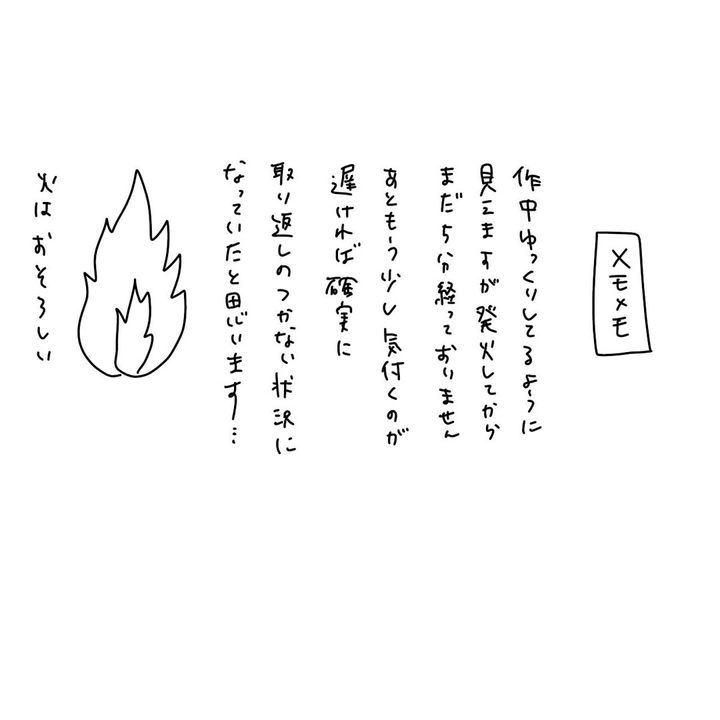 メモメモ
作中ゆっくりしてるように
見えますが発火してから
まだ5分経っておりません
あともう少し気付くのが
遅ければ確実に
取り返しのつかない状況に
なっていたと思います…
火はおそろしい